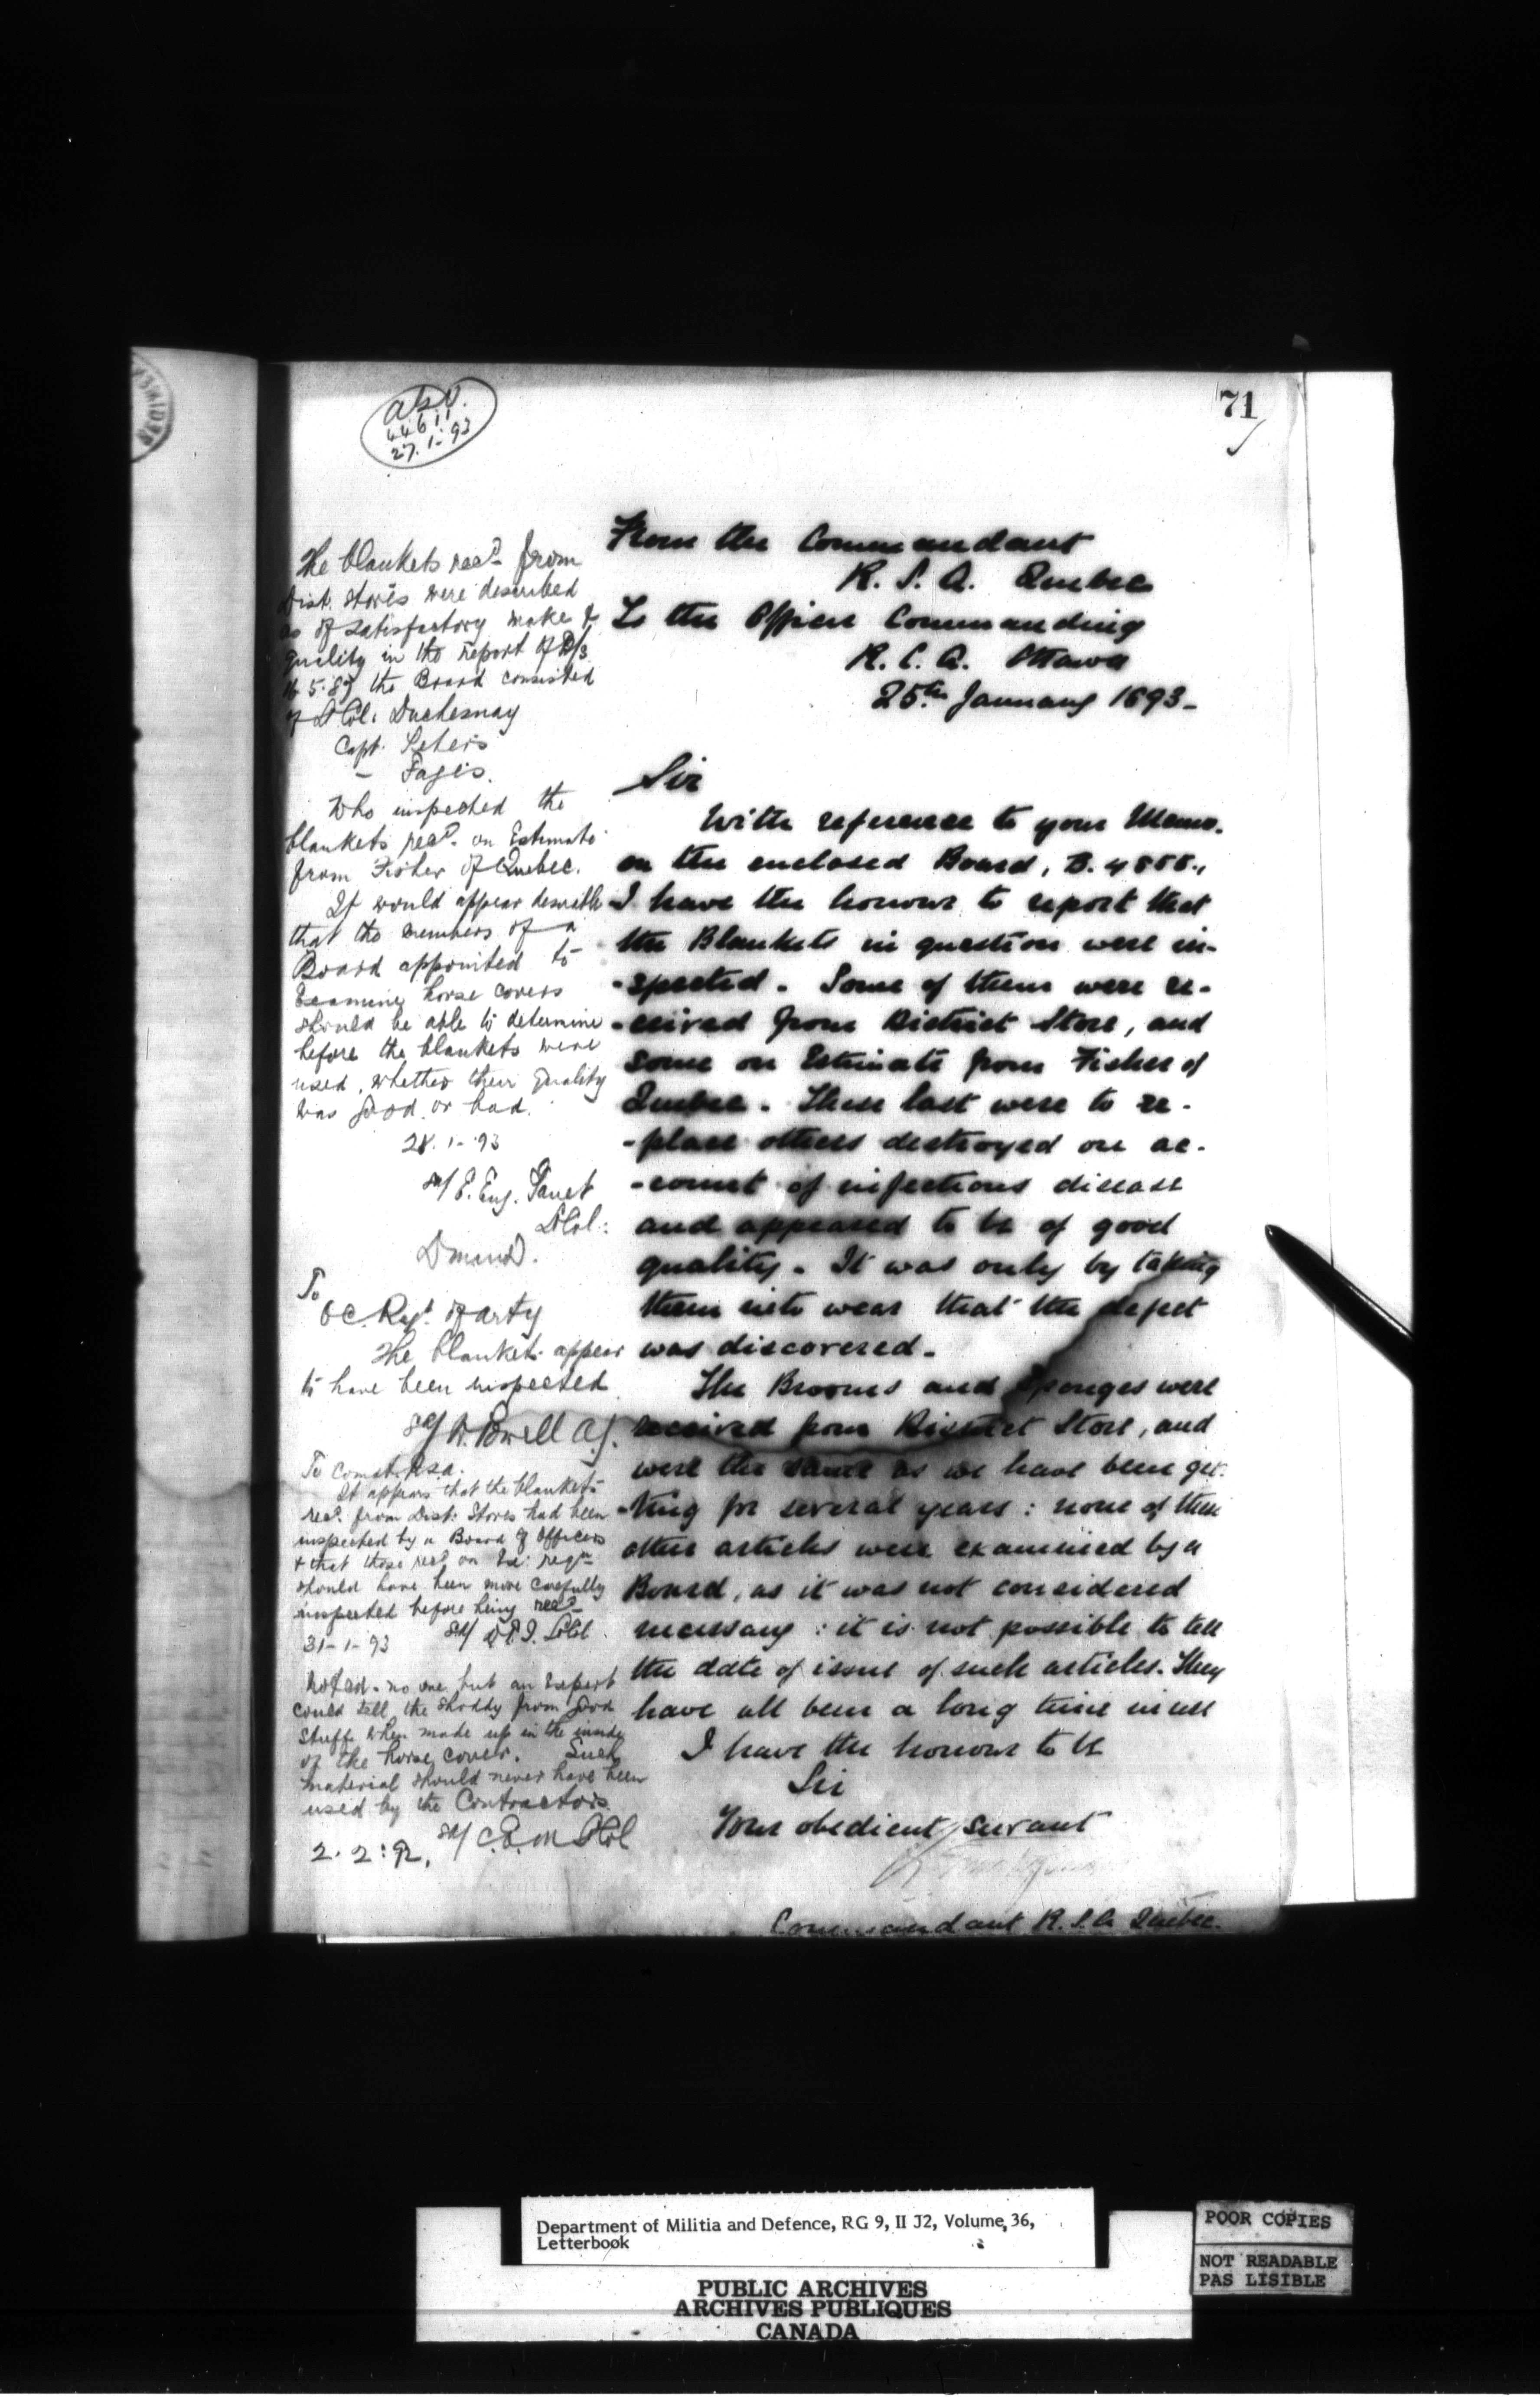 71
44611
27.1-93
From the Commandant
R. S. A. Quebec
To the Officer Commanding
R. C. A. Ottawa
25th January 1893-
Sir
With reference to your Memo.
on the enclosed Board, B. 4858.,
I have the honour to report that
the Blankets in question were in-
-spected. Some of them were re-
-ceived from District Store, and
some on Estimate from Fisher of
Quebec. These last were to re-
-place others destroyed on ac-
-count of infectious disease
and appeared to be of good
quality. It was only by taking
them into wear that the defect
was discovered.
The Brooms and Sponges were
received from District Store, and
were the same as we have been get-
-ting for several years: none of these
other articles were examined by a
Board, as it was not considered
necessary: it is not possible to tell
the date of issue of such articles. They
have all been a long time in use
I have the honour to be
Sir
Your obedient servant
Commandant R.S.A Quebec.
The blankets recd from
Dist. Stores were described
as of satisfactory make &
quality in the report of B/s
the Board consisted
of Lt Col: Duchesnay
Capt. Peters
- Fages.
Who inspected the
blankets recd. on Estimate
from Fisher of Quebec.
It would appear desirable
that the members of a
Board appointed to
Examine horse covers
should be able to determine
before the blankets were
used, whether their quality
was good or bad.
28.1-93
sd/ E. Eug. Panet
Lt Col:
To
O.C. Regt. of Arty
The blankets appear
to have been inspected
sd/ W. Powell A.G.
To Comdt R.S.A.
It appears that the blankets
recd. from Dist: Stores had been
inspected by a Board of Officers
& that those recd on Es: reqn
should have been more carefully
inspected before being recd-
31-1-93 sd/ D.T.I. Lt Col.
Noted - no one but an Expert
could tell the shoddy from good
stuff when made up in the inside
of the horse cover. Such
material should never have been
used by the Contractors.
2.2:92. sd/ C.E.M Lt Col
Department of Militia and Defence, RG 9, II J2, Volume, 36,
Letterbook
PUBLIC ARCHIVES
ARCHIVES PUBLIQUES
CANADA
POOR COPIES
NOT READABLE
PAS LISIBLE